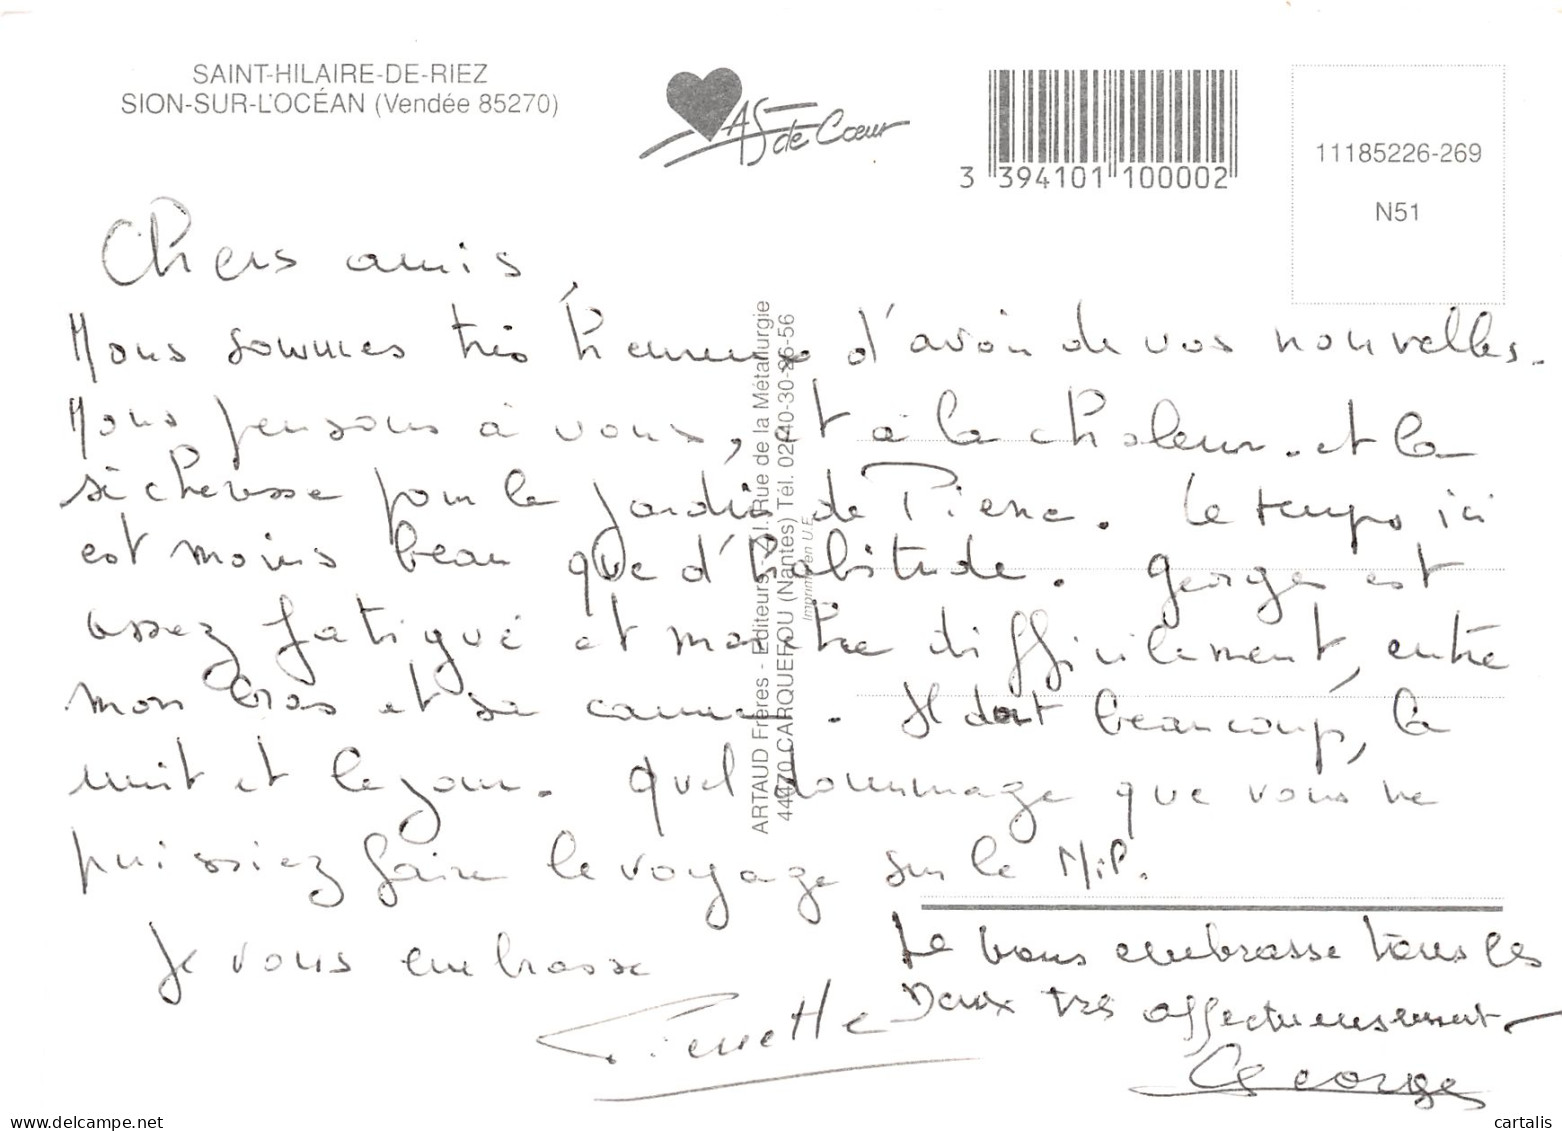 SAINT-HILAIRE-DE-RIEZ
SION-SUR-L'OCÉAN (Vendée 85270)
AS de Cœur
3 394101 100002
11185226-269
N51
Chers amis
Nous sommes très heureux d'avoir de vos nouvelles.
Nous pensons à vous, et à la chaleur. et la
sécheresse pour le jardin de Pierre. Le temps ici
est moins beau que d'habitude. Georges est
assez fatigué et marche difficilement, entre
mon bras et sa canne. Il dort beaucoup, la
nuit et le jour. Quel dommage que vous ne
puissiez faire le voyage sur le
Je vous embrasse
Pierrette
Je vous embrasse tous les
Deux très affectueusement
Georges
ARTAUD Frères - Editeurs - Z.I. Rue de la Métallurgie
44470 CARQUEFOU (Nantes) Tél. 02-40-30-26-56
Imprimé en U.E.
cartalis
www.delcampe.net